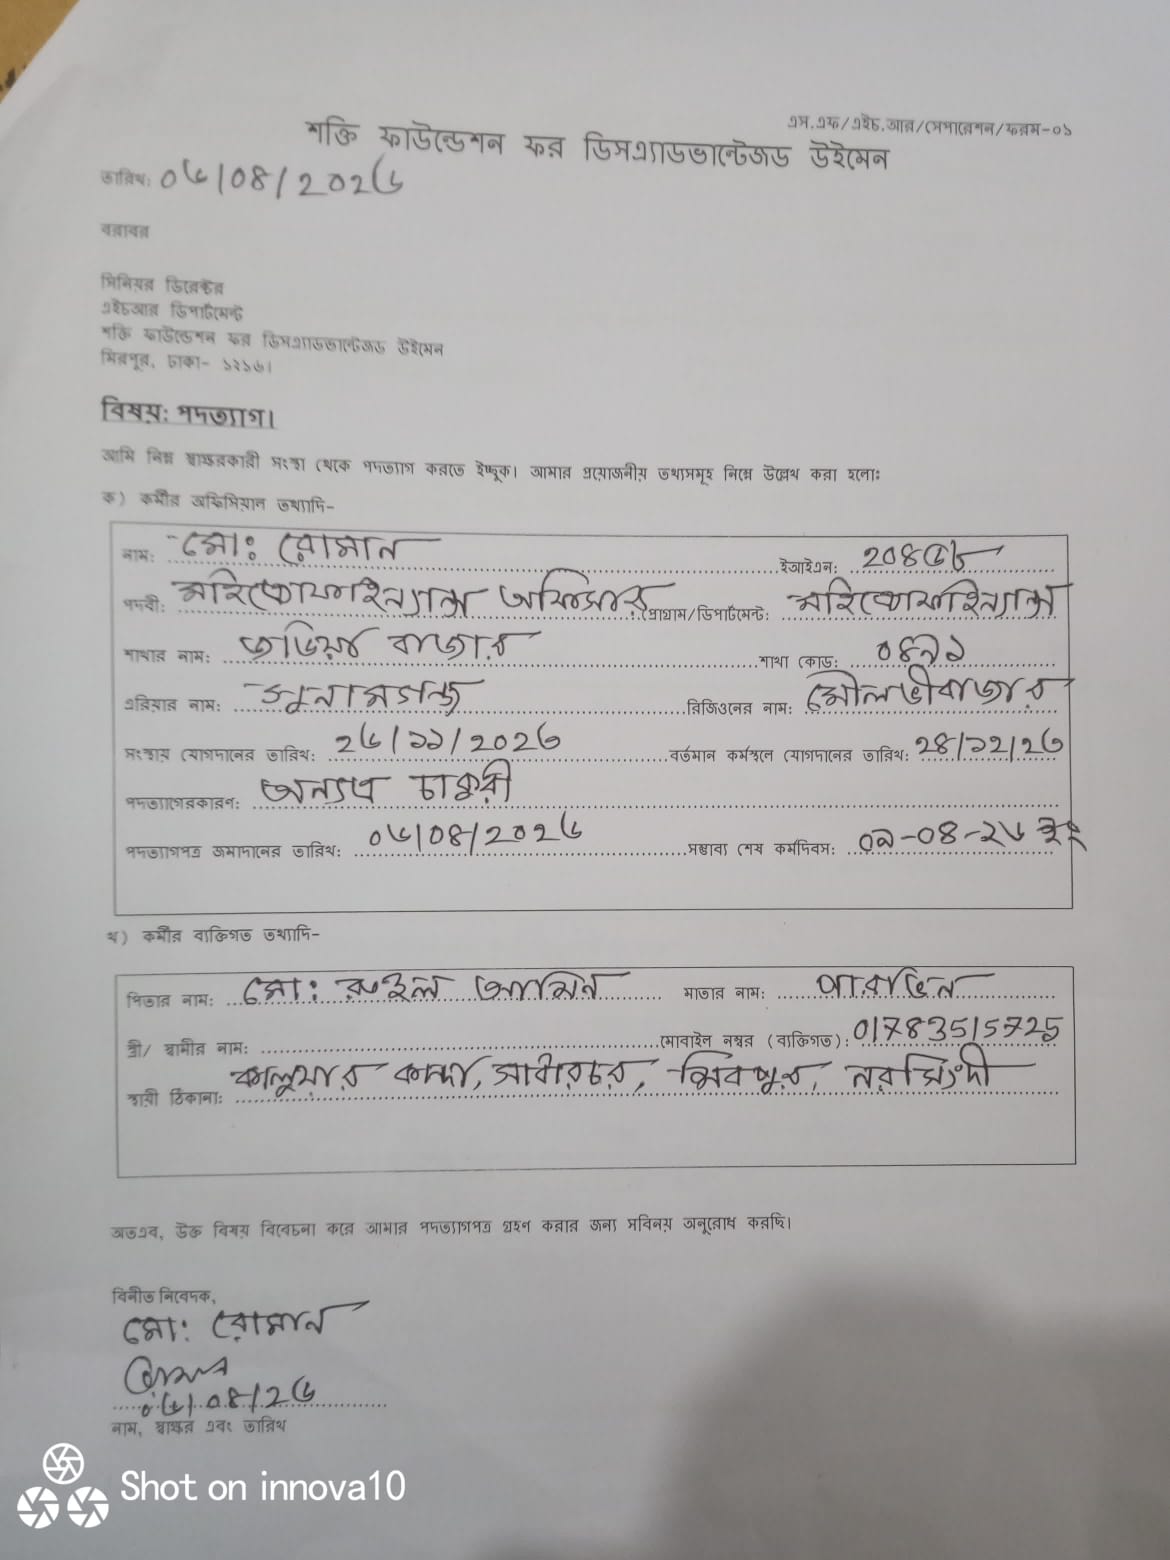 এস.এফ/এইচ.আর/সেপারেশন/ফরম-০১
শক্তি ফাউন্ডেশন ফর ডিসএ্যাডভান্টেজড উইমেন
তারিখ: ০৬/০৪/২০২৬
বরাবর
সিনিয়র ডিরেক্টর
এইচআর ডিপার্টমেন্ট
শক্তি ফাউন্ডেশন ফর ডিসএ্যাডভান্টেজড উইমেন
মিরপুর, ঢাকা- ১২১৬।
বিষয়: পদত্যাগ।
আমি নিম্ন স্বাক্ষরকারী সংস্থা থেকে পদত্যাগ করতে ইচ্ছুক। আমার প্রয়োজনীয় তথ্যসমূহ নিম্নে উল্লেখ করা হলো:
ক) কর্মীর অফিসিয়াল তথ্যাদি-
নাম: মোঃ রোমান ইআইএন: ২০৪৫৬
পদবী: মাইক্রোফাইন্যান্স অফিসার প্রোগ্রাম/ডিপার্টমেন্ট: মাইক্রোফাইন্যান্স
শাখার নাম: বাজার শাখা কোড: ০৪৭১
এরিয়ার নাম: সুনামগঞ্জ রিজিওনের নাম: মৌলভীবাজার
সংস্থায় যোগদানের তারিখ: ২৬/১১/২০২৩ বর্তমান কর্মস্থলে যোগদানের তারিখ: ২৪/১২/২৩
পদত্যাগেরকারণ: অন্যত্র চাকুরী
পদত্যাগপত্র জমাদানের তারিখ: ০৬/০৪/২০২৬ সম্ভাব্য শেষ কর্মদিবস: ০৯-০৪-২৬ ইং
খ) কর্মীর ব্যক্তিগত তথ্যাদি-
পিতার নাম: মো: রুহুল আমিন মাতার নাম: পারভিন
স্ত্রী/ স্বামীর নাম: মোবাইল নম্বর (ব্যক্তিগত): 01783515725
স্থায়ী ঠিকানা: কান্দা, সাধারচর, শিবপুর, নরসিংদী
অতএব, উক্ত বিষয় বিবেচনা করে আমার পদত্যাগপত্র গ্রহণ করার জন্য সবিনয় অনুরোধ করছি।
বিনীত নিবেদক,
মো: রোমান
রোমান
০৬/০৪/২৬
নাম, স্বাক্ষর এবং তারিখ
Shot on innova10